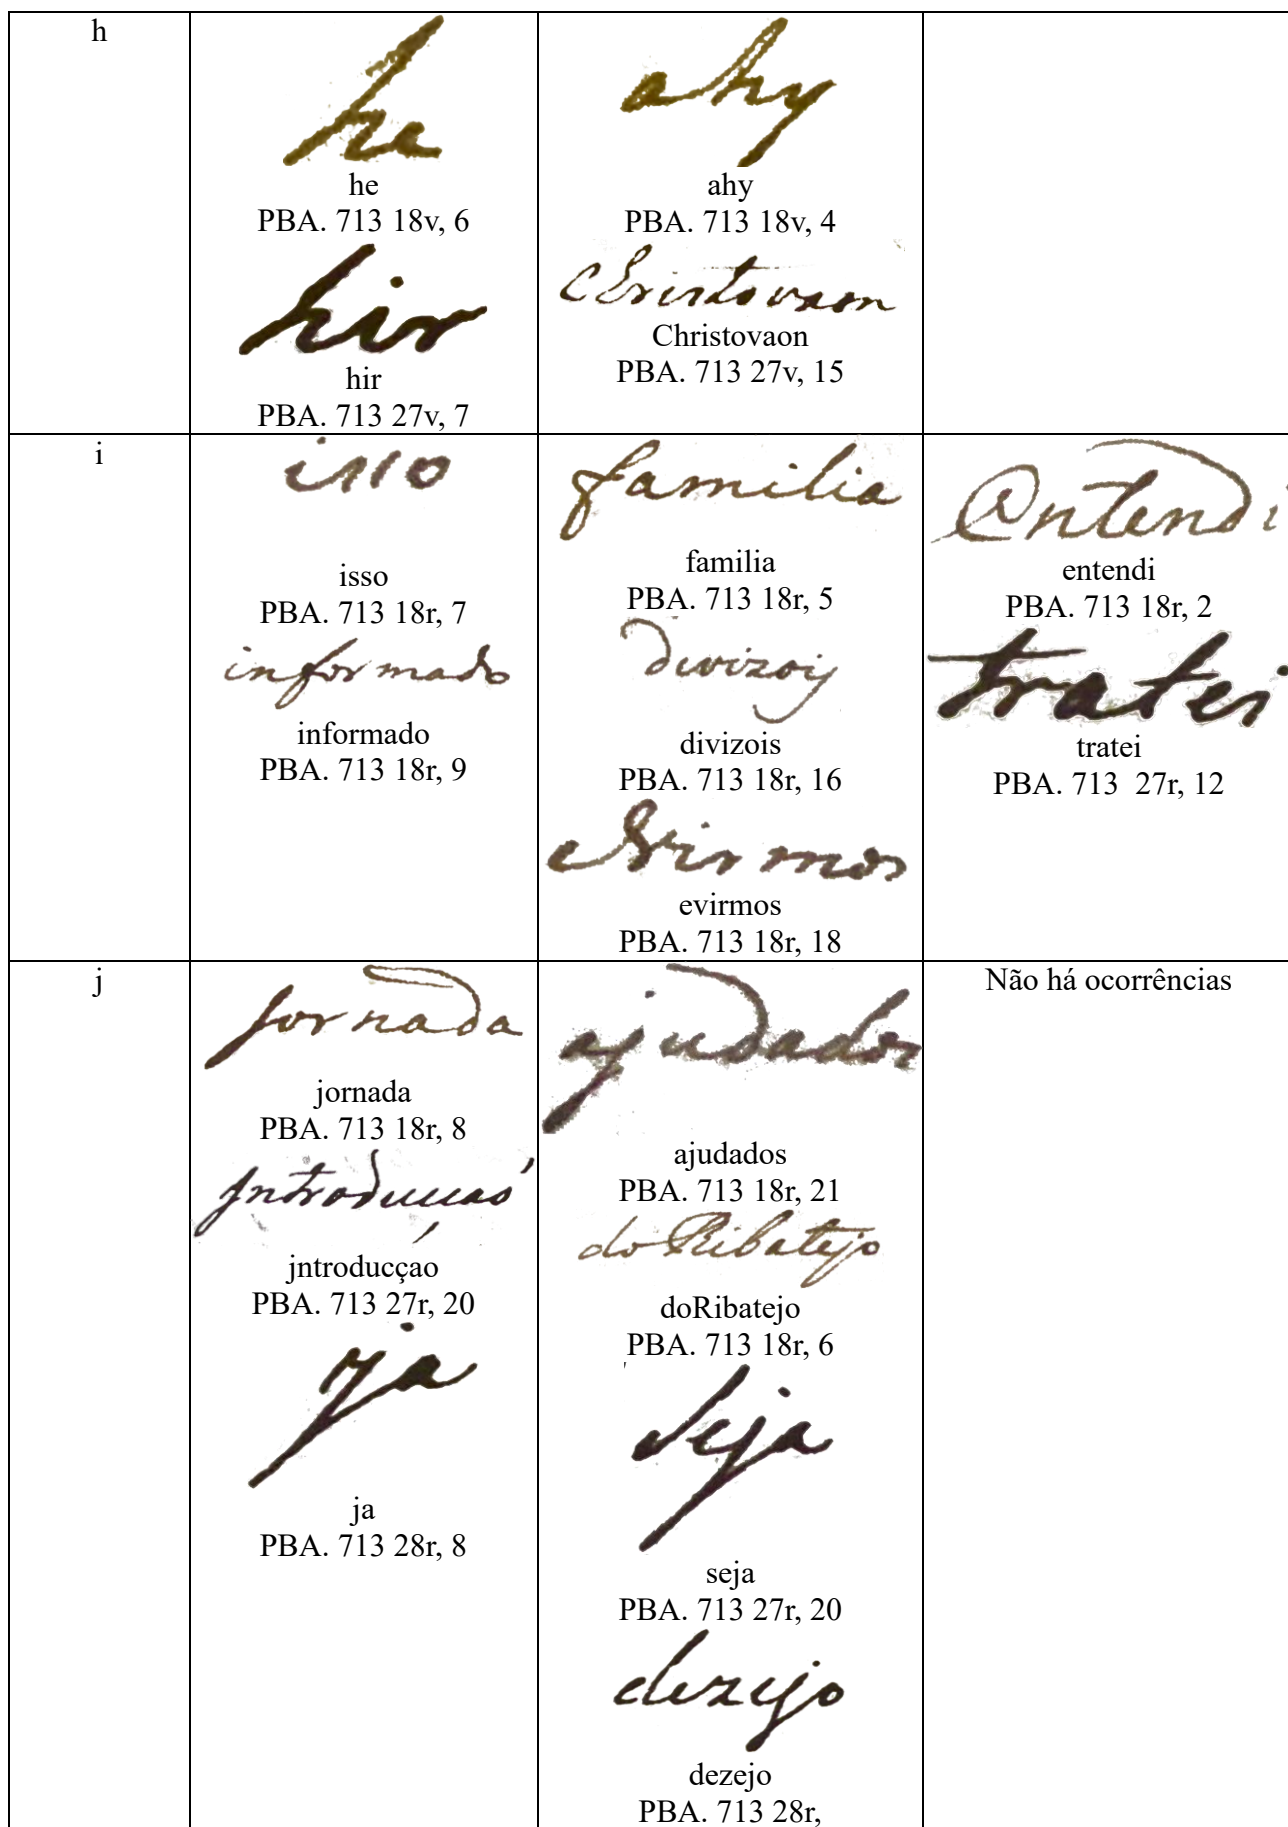 h
he
he
PBA. 713 18v, 6
hir
hir
PBA. 713 27v, 7
ahy
ahy
PBA. 713 18v, 4
Christovaon
Christovaon
PBA. 713 27v, 15
i
isso
isso
PBA. 713 18r, 7
informado
informado
PBA. 713 18r, 9
familia
familia
PBA. 713 18r, 5
divizois
divizois
PBA. 713 18r, 16
evirmos
evirmos
PBA. 713 18r, 18
entendi
entendi
PBA. 713 18r, 2
tratei
tratei
PBA. 713 27r, 12
j
jornada
jornada
PBA. 713 18r, 8
jntroducçaó
jntroducçao
PBA. 713 27r, 20
ja
ja
PBA. 713 28r, 8
ajudados
ajudados
PBA. 713 18r, 21
doRibatejo
doRibatejo
PBA. 713 18r, 6
seja
seja
PBA. 713 27r, 20
dezejo
dezejo
PBA. 713 28r,
Não há ocorrências